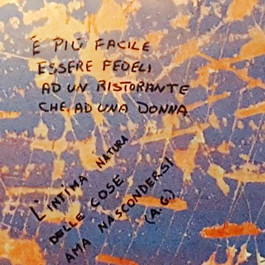 È PIÙ FACILE
ESSERE FEDELI
AD UN RISTORANTE
CHE AD UNA DONNA
L'INTIMA NATURA
DELLE COSE
AMA NASCONDERSI
(A.G.)